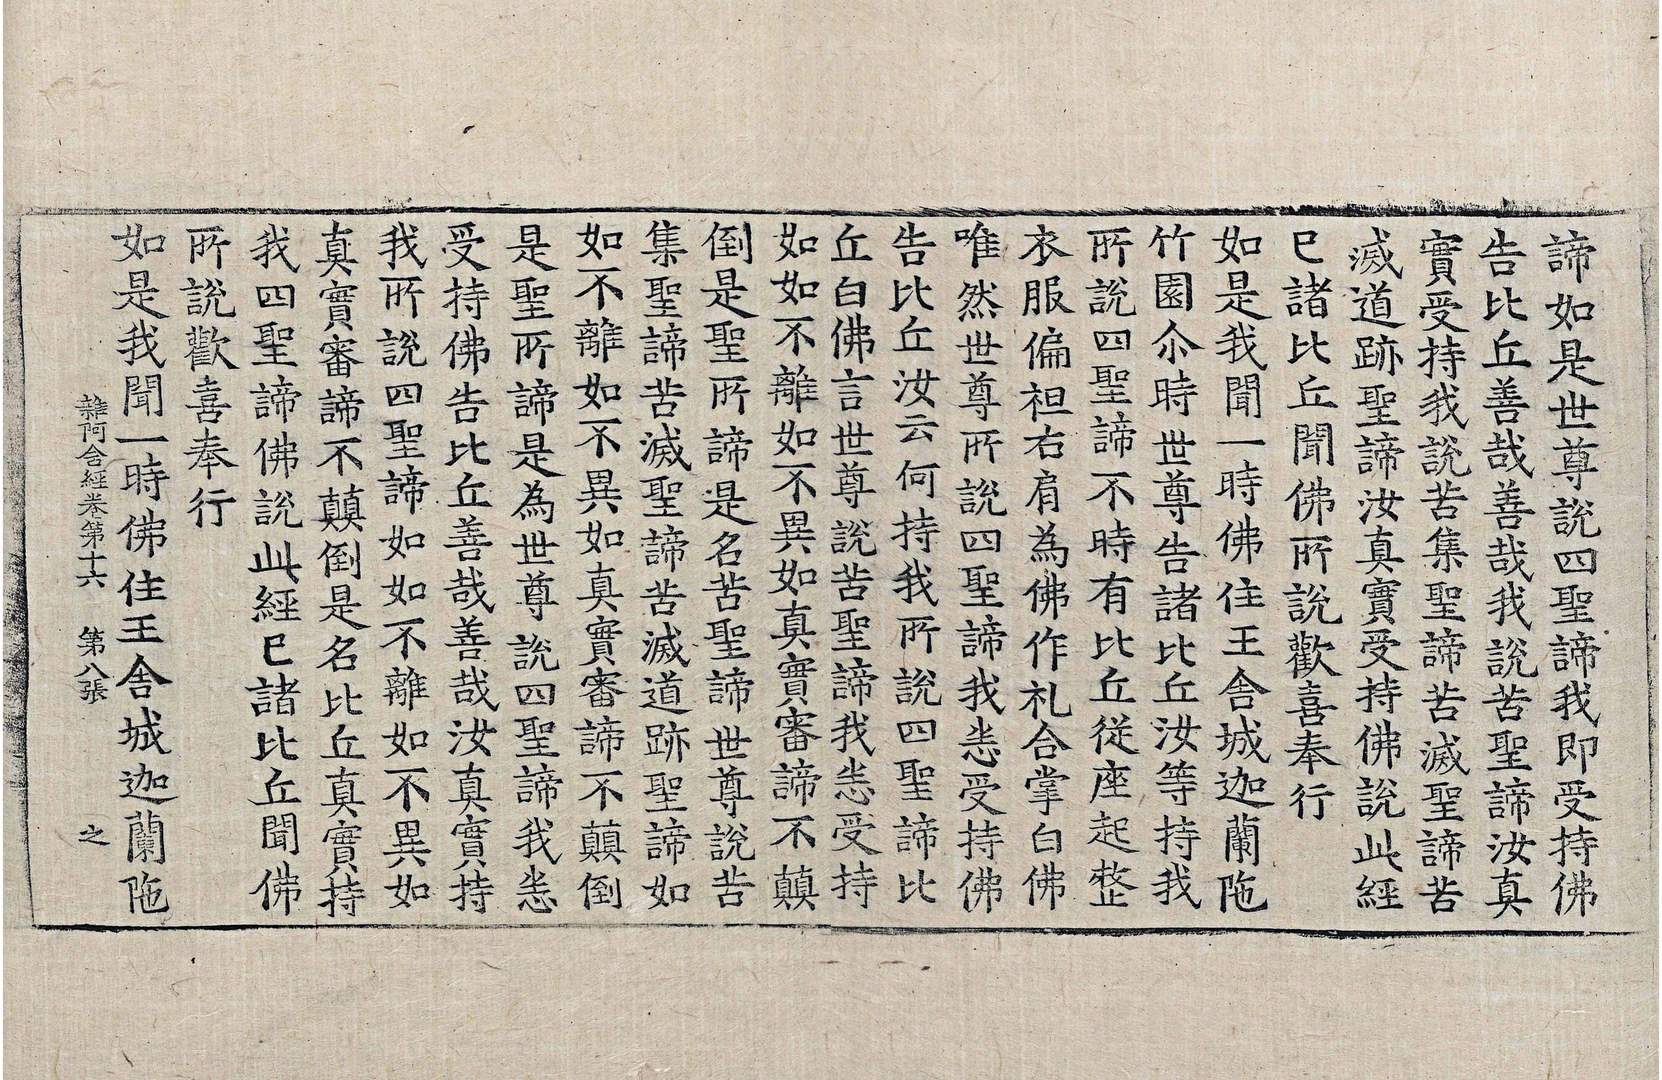 諦如是世尊說四聖諦我即受持佛
告比丘善哉善哉我說苦聖諦汝真
實受持我說苦集聖諦苦滅聖諦苦
滅道跡聖諦汝真實受持佛說此經
已諸比丘聞佛所說歡喜奉行
如是我聞一時佛住王舍城迦蘭陁
竹園尒時世尊告諸比丘汝等持我
所說四聖諦不時有比丘從座起整
衣服偏袒右肩為佛作礼合掌白佛
唯然世尊所說四聖諦我悉受持佛
告比丘汝云何持我所說四聖諦比
丘白佛言世尊說苦聖諦我悉受持
如如不離如不異如真實審諦不顛
倒是聖所諦是名苦聖諦世尊說苦
集聖諦苦滅聖諦苦滅道跡聖諦如
如不離如不異如真實審諦不顛倒
是聖所諦是為世尊說四聖諦我悉
受持佛告比丘善哉善哉汝真實持
我所說四聖諦如如不離如不異如
真實審諦不顛倒是名比丘真實持
我四聖諦佛說此經已諸比丘聞佛
所說歡喜奉行
如是我聞一時佛住王舍城迦蘭陁
雜阿含經卷第十六 第八張 之